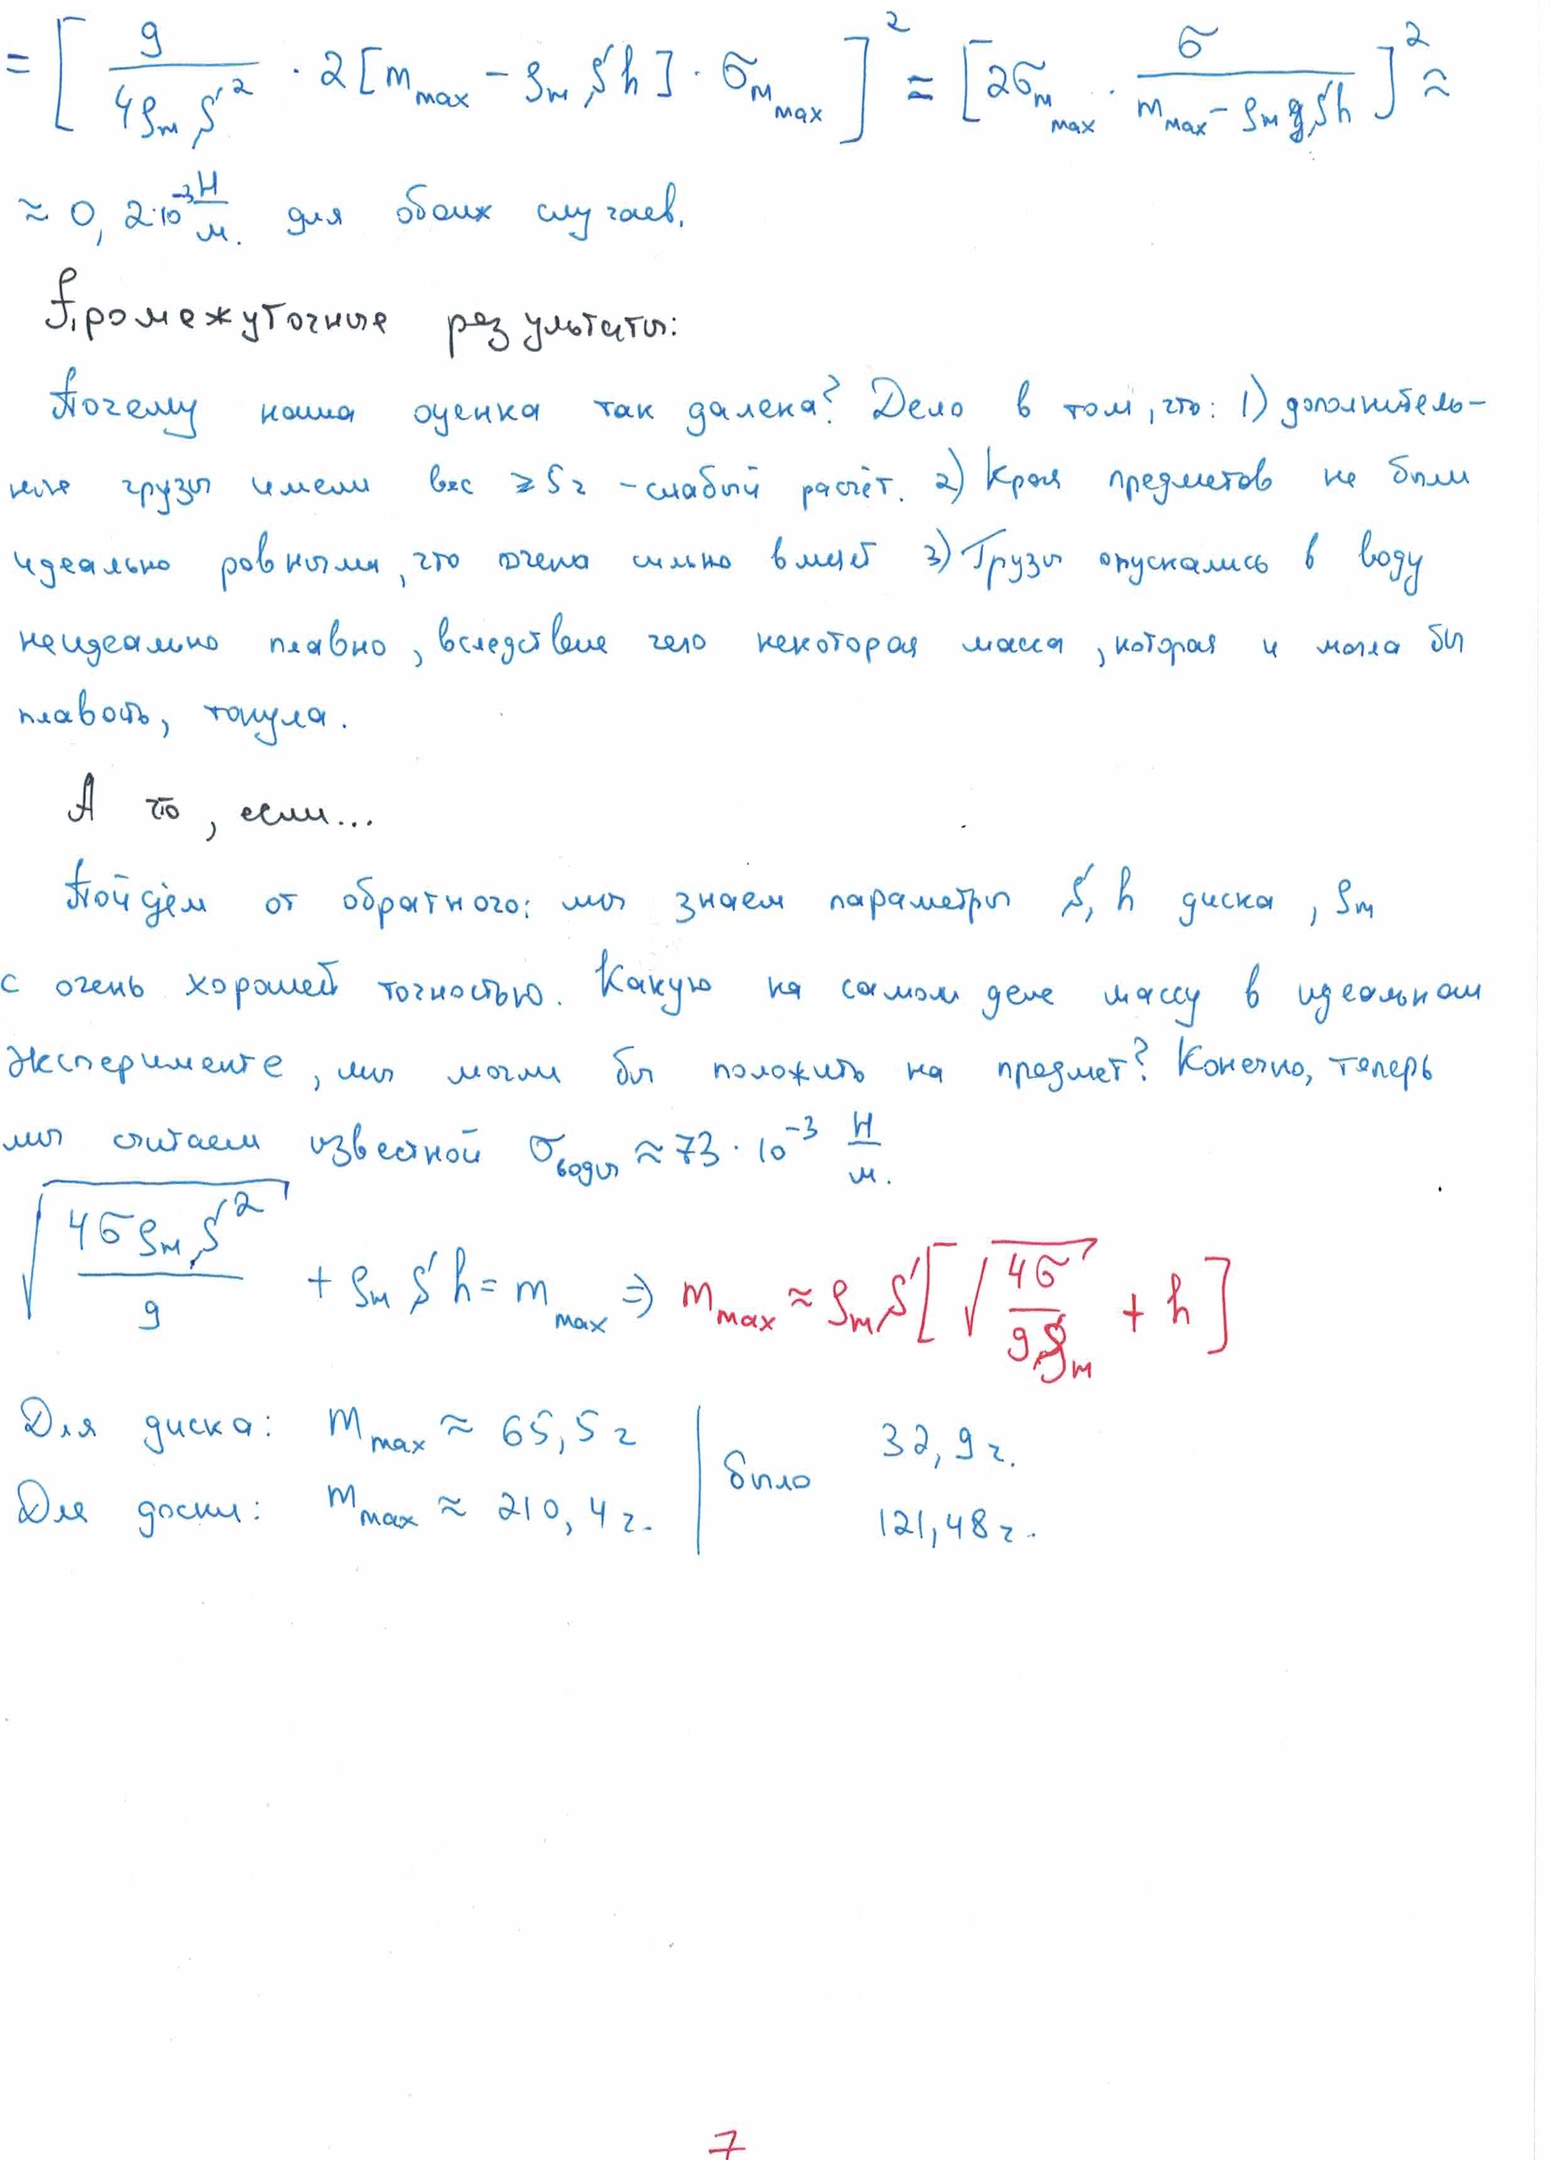 = [ g / 4ρₘS² · 2[m_max − ρₘSh] · σ_m_max ]² = [ 2σ_m_max · σ / (m_max − ρₘgSh) ]² ≈
≈ 0,2·10⁻³ Н/м. для обоих случаев.
Промежуточные результаты:
Почему наша оценка так далека? Дело в том, что: 1) дополнитель-
ные грузы имели вес ≥ 5г – слабый расчёт. 2) Края предметов не были
идеально ровными, что очень сильно влияет 3) Грузы опускались в воду
неидеально плавно, вследствие чего некоторая масса, которая и могла бы
плавать, тонула.
А что, если...
Пойдём от обратного: мы знаем параметры S, h диска, ρₘ
с очень хорошей точностью. Какую на самом деле массу в идеальном
эксперименте, мы могли бы положить на предмет? Конечно, теперь
мы считаем известной σ_воды ≈ 73 · 10⁻³ Н/м.
√(4σρₘS² / g) + ρₘSh = m_max ⇒ m_max ≈ ρₘS[√(4σ / gρₘ) + h]
Для диска: m_max ≈ 65,5г | было 32,9г.
Для доски: m_max ≈ 210,4г. | 121,48г.
7